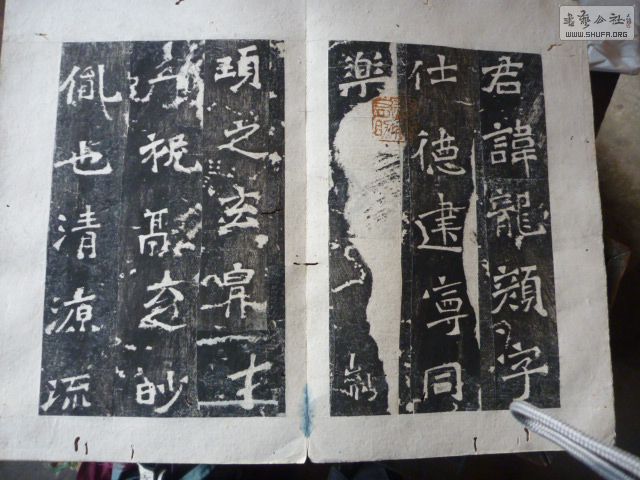 君諱龍顏字
仕德建寧同
樂
頊之玄冑才
子祝融之眇
胤也清源流
书艺公社
WWW.SHUFA.ORG